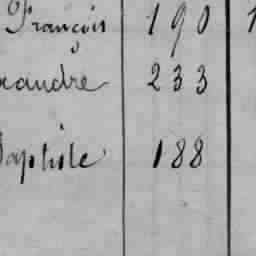 François 190 1
xandre 233
Baptiste 188